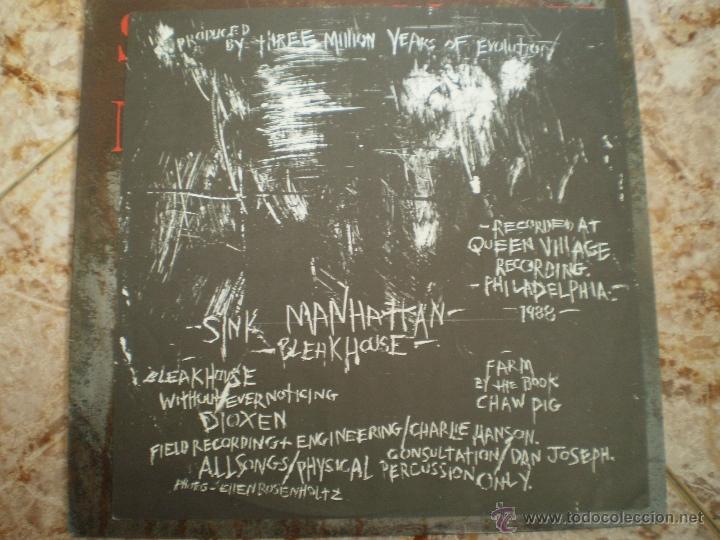 PRODUCED BY THREE MILLION YEARS OF EVOLUTION
-RECORDED AT
QUEEN VILLAGE
RECORDING.
-PHILADELPHIA.-
-1988-
-SINK MANHATTAN-
-BLEAKHOUSE-
BLEAKHOUSE
WITHOUT EVER NOTICING
DIOXEN
FARM
BY THE BOOK
CHAW PIG
FIELD RECORDING + ENGINEERING/CHARLIE HANSON.
CONSULTATION/DAN JOSEPH.
ALL SONGS/PHYSICAL PERCUSSION ONLY.
PHOTOS-ELLEN ROSENHOLTZ
© www.todocoleccion.net